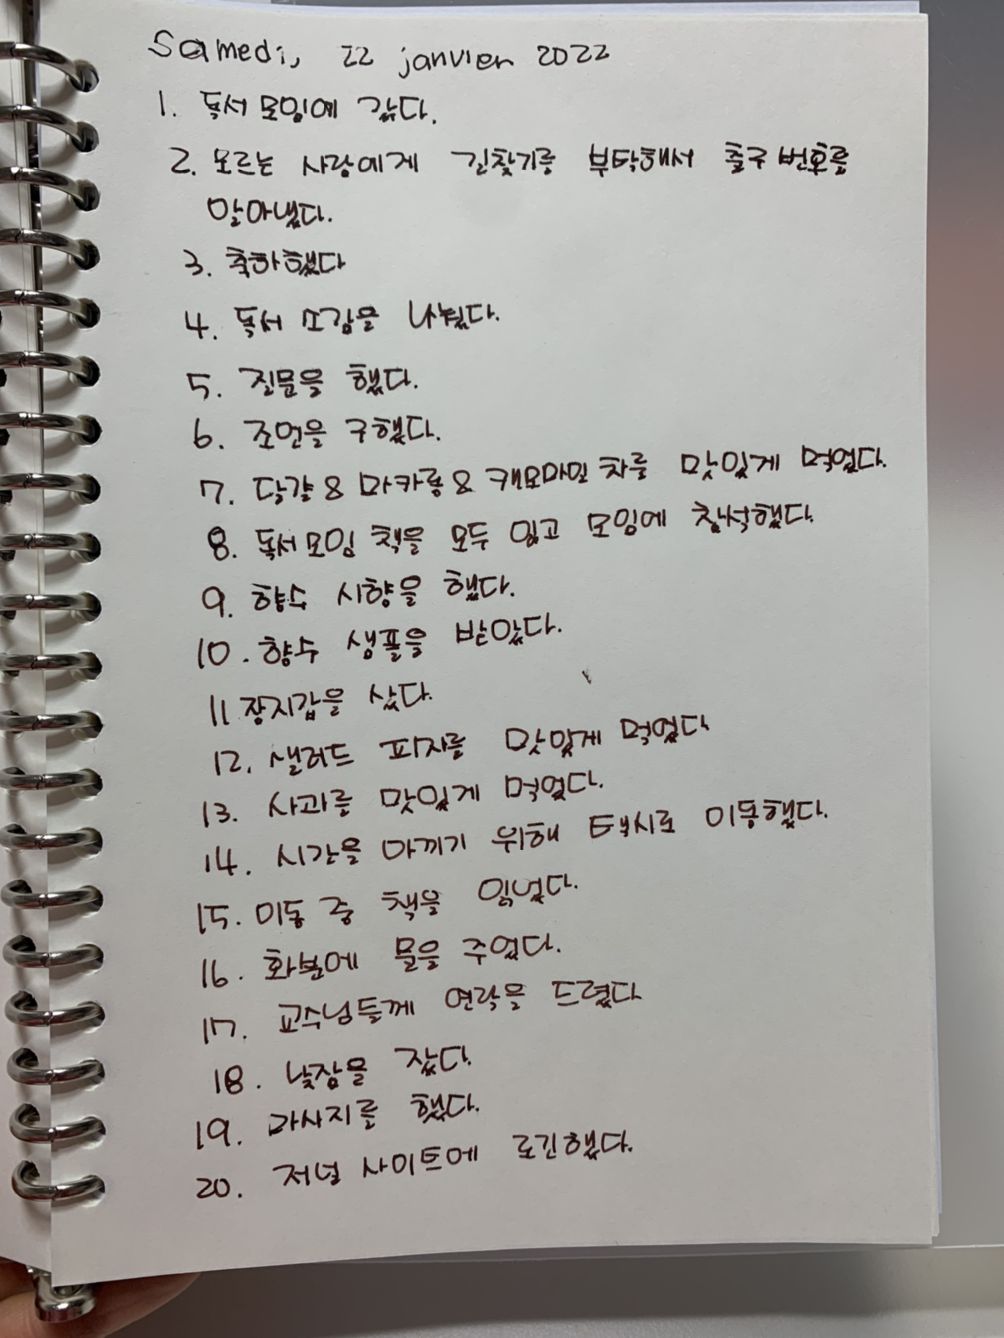 Samedi, 22 janvier 2022
1. 독서 모임에 갔다.
2. 모르는 사람에게 길찾기를 부탁해서 출구 번호를
알아냈다.
3. 축하했다
4. 독서 소감을 나눴다.
5. 질문을 했다.
6. 조언을 구했다.
7. 달걀 & 마카롱 & 캐모마일 차를 맛있게 먹었다.
8. 독서모임 책을 모두 읽고 모임에 참석했다.
9. 향수 시향을 했다.
10. 향수 샘플을 받았다.
11 장지갑을 샀다.
12. 샐러드 피자를 맛있게 먹었다
13. 사과를 맛있게 먹었다.
14. 시간을 아끼기 위해 택시로 이동했다.
15. 이동 중 책을 읽었다.
16. 화분에 물을 주었다.
17. 교수님들께 연락을 드렸다
18. 낮잠을 잤다.
19. 마사지를 했다.
20. 저널 사이트에 로긴했다.